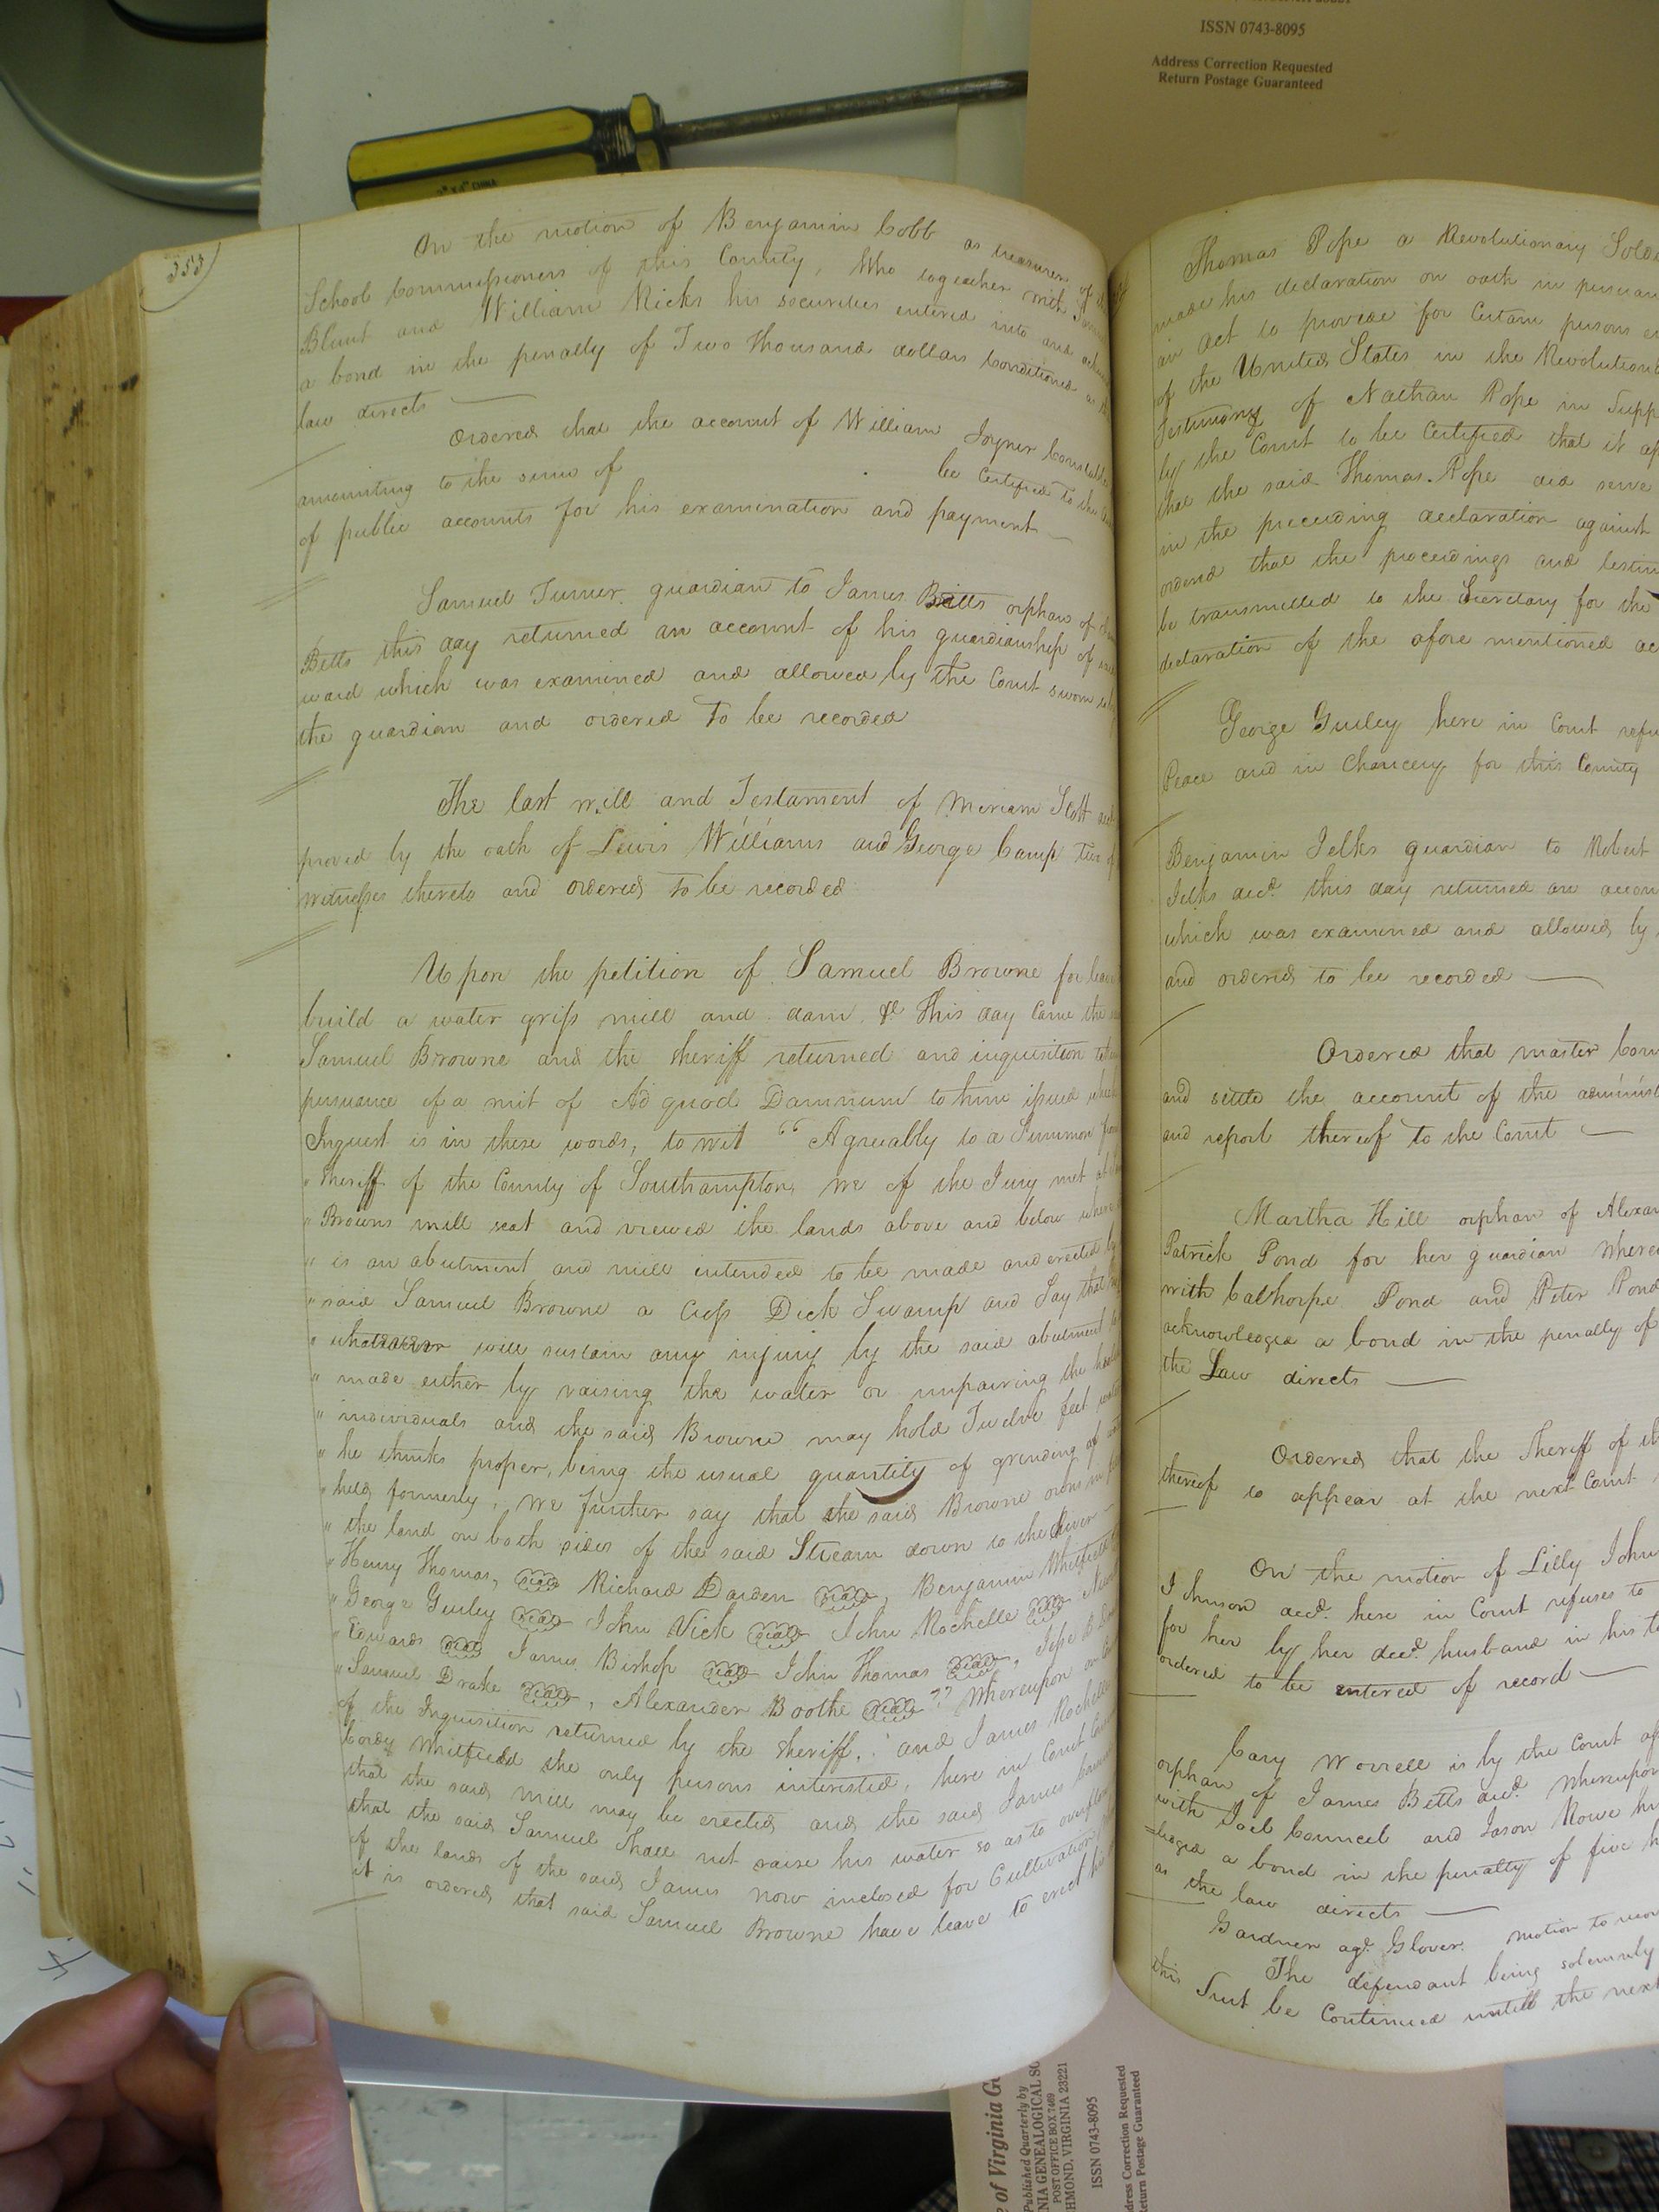 ISSN 0743-8095
Address Correction Requested
Return Postage Guaranteed
353
On the motion of Benjamin Cobb as treasurer of the
School Commissioners of this County, Who together with
Blunt and William Ricks his securities entered into and
a bond in the penalty of Two Thousand dollars Conditioned as the
law directs
Ordered that the account of William Joyner Constable
amounting to the sum of be Certified to the
of public accounts for his examination and payment
Samuel Turner guardian to James Betts orphan of
Betts this day returned an account of his guardianship of
ward which was examined and allowed by the Court sworn to
the guardian and ordered to be recorded
The last will and Testament of Meriam Scott
proved by the oath of Lewis Williams and George Camp Two of
witnesses thereto and ordered to be recorded
Upon the petition of Samuel Browne for leave
build a water grist mill and dam &c This day came the
Samuel Browne and the sheriff returned and inquisition
pursuance of a writ of Ad quod Damnum to him issued
Inquest is in these words, to wit " Agreeably to a Summon from
" Sheriff of the County of Southampton, we of the Jury met at
" Browns mill seat and viewed the lands above and below where
" is an abutment and mill intended to be made and erected by
" said Samuel Browne a Cross Deck Swamp and Say that
" whatsoever will sustain any injury by the said abutment
" made either by raising the water or impairing the
" individuals and the said Browne may hold Twelve feet water
" he thinks proper, being the usual quantity of grinding
" held formerly, we further say that the said Browne owns
" the land on both sides of the said Stream down to the River
" Henry Thomas, seal Richard Darden seal, Benjamin Whitfield
" George Gurley seal John Vick seal John Rochelle seal
" Edwards seal James Bishop seal John Thomas seal,
" Samuel Drake seal, Alexander Boothe seal " Whereupon
of the Inquisition returned by the sheriff, and James Rochelle
Cordy Whitfield the only persons interested, here in Court
that the said mill may be erected and the said James
that the said Samuel shall not raise his water so as to overflow
of the lands of the said James now inclosed for Cultivation
it is ordered that said Samuel Browne have leave to erect his
Thomas Pope a Revolutionary
made his declaration on oath in
an act to provide for Certain persons
of the United States in the
Testimony of Nathan Pope in
by the Court to be Certified that it
that the said Thomas Pope did serve
in the preceeding declaration against
ordered that the proceedings and
be transmitted to the Secretary for the
declaration of the afore mentioned
George Gurley here in Court
Peace and in Chancery for this County
Benjamin Jelks guardian to Robert
Jelks decd. this day returned an
which was examined and allowed by
and ordered to be recorded
Ordered that master
and settle the account of the
and report thereof to the Court
Martha Hill orphan of
Patrick Pond for her guardian
with Calthorpe Pond and Peter Pond
acknowledged a bond in the penalty of
the Law directs
Ordered that the Sheriff of
thereof to appear at the next Court
On the motion of Lilly
Johnson decd. here in Court refuses to
for her by her decd. husband in his
ordered to be entered of record
Cary Worrell is by the Court
orphan of James Betts decd. Whereupon
with Joel Councel and Jason Rowe
=ledged a bond in the penalty of five
as the law directs
Gardner agt. Glover. Motion to
The defendant being solemnly
this Suit be Continued untill the next
of Virginia
Published Quarterly by
GENEALOGICAL
POST OFFICE BOX 7469
VIRGINIA 23221
ISSN 0743-8095
Address Correction Requested
Return Postage Guaranteed